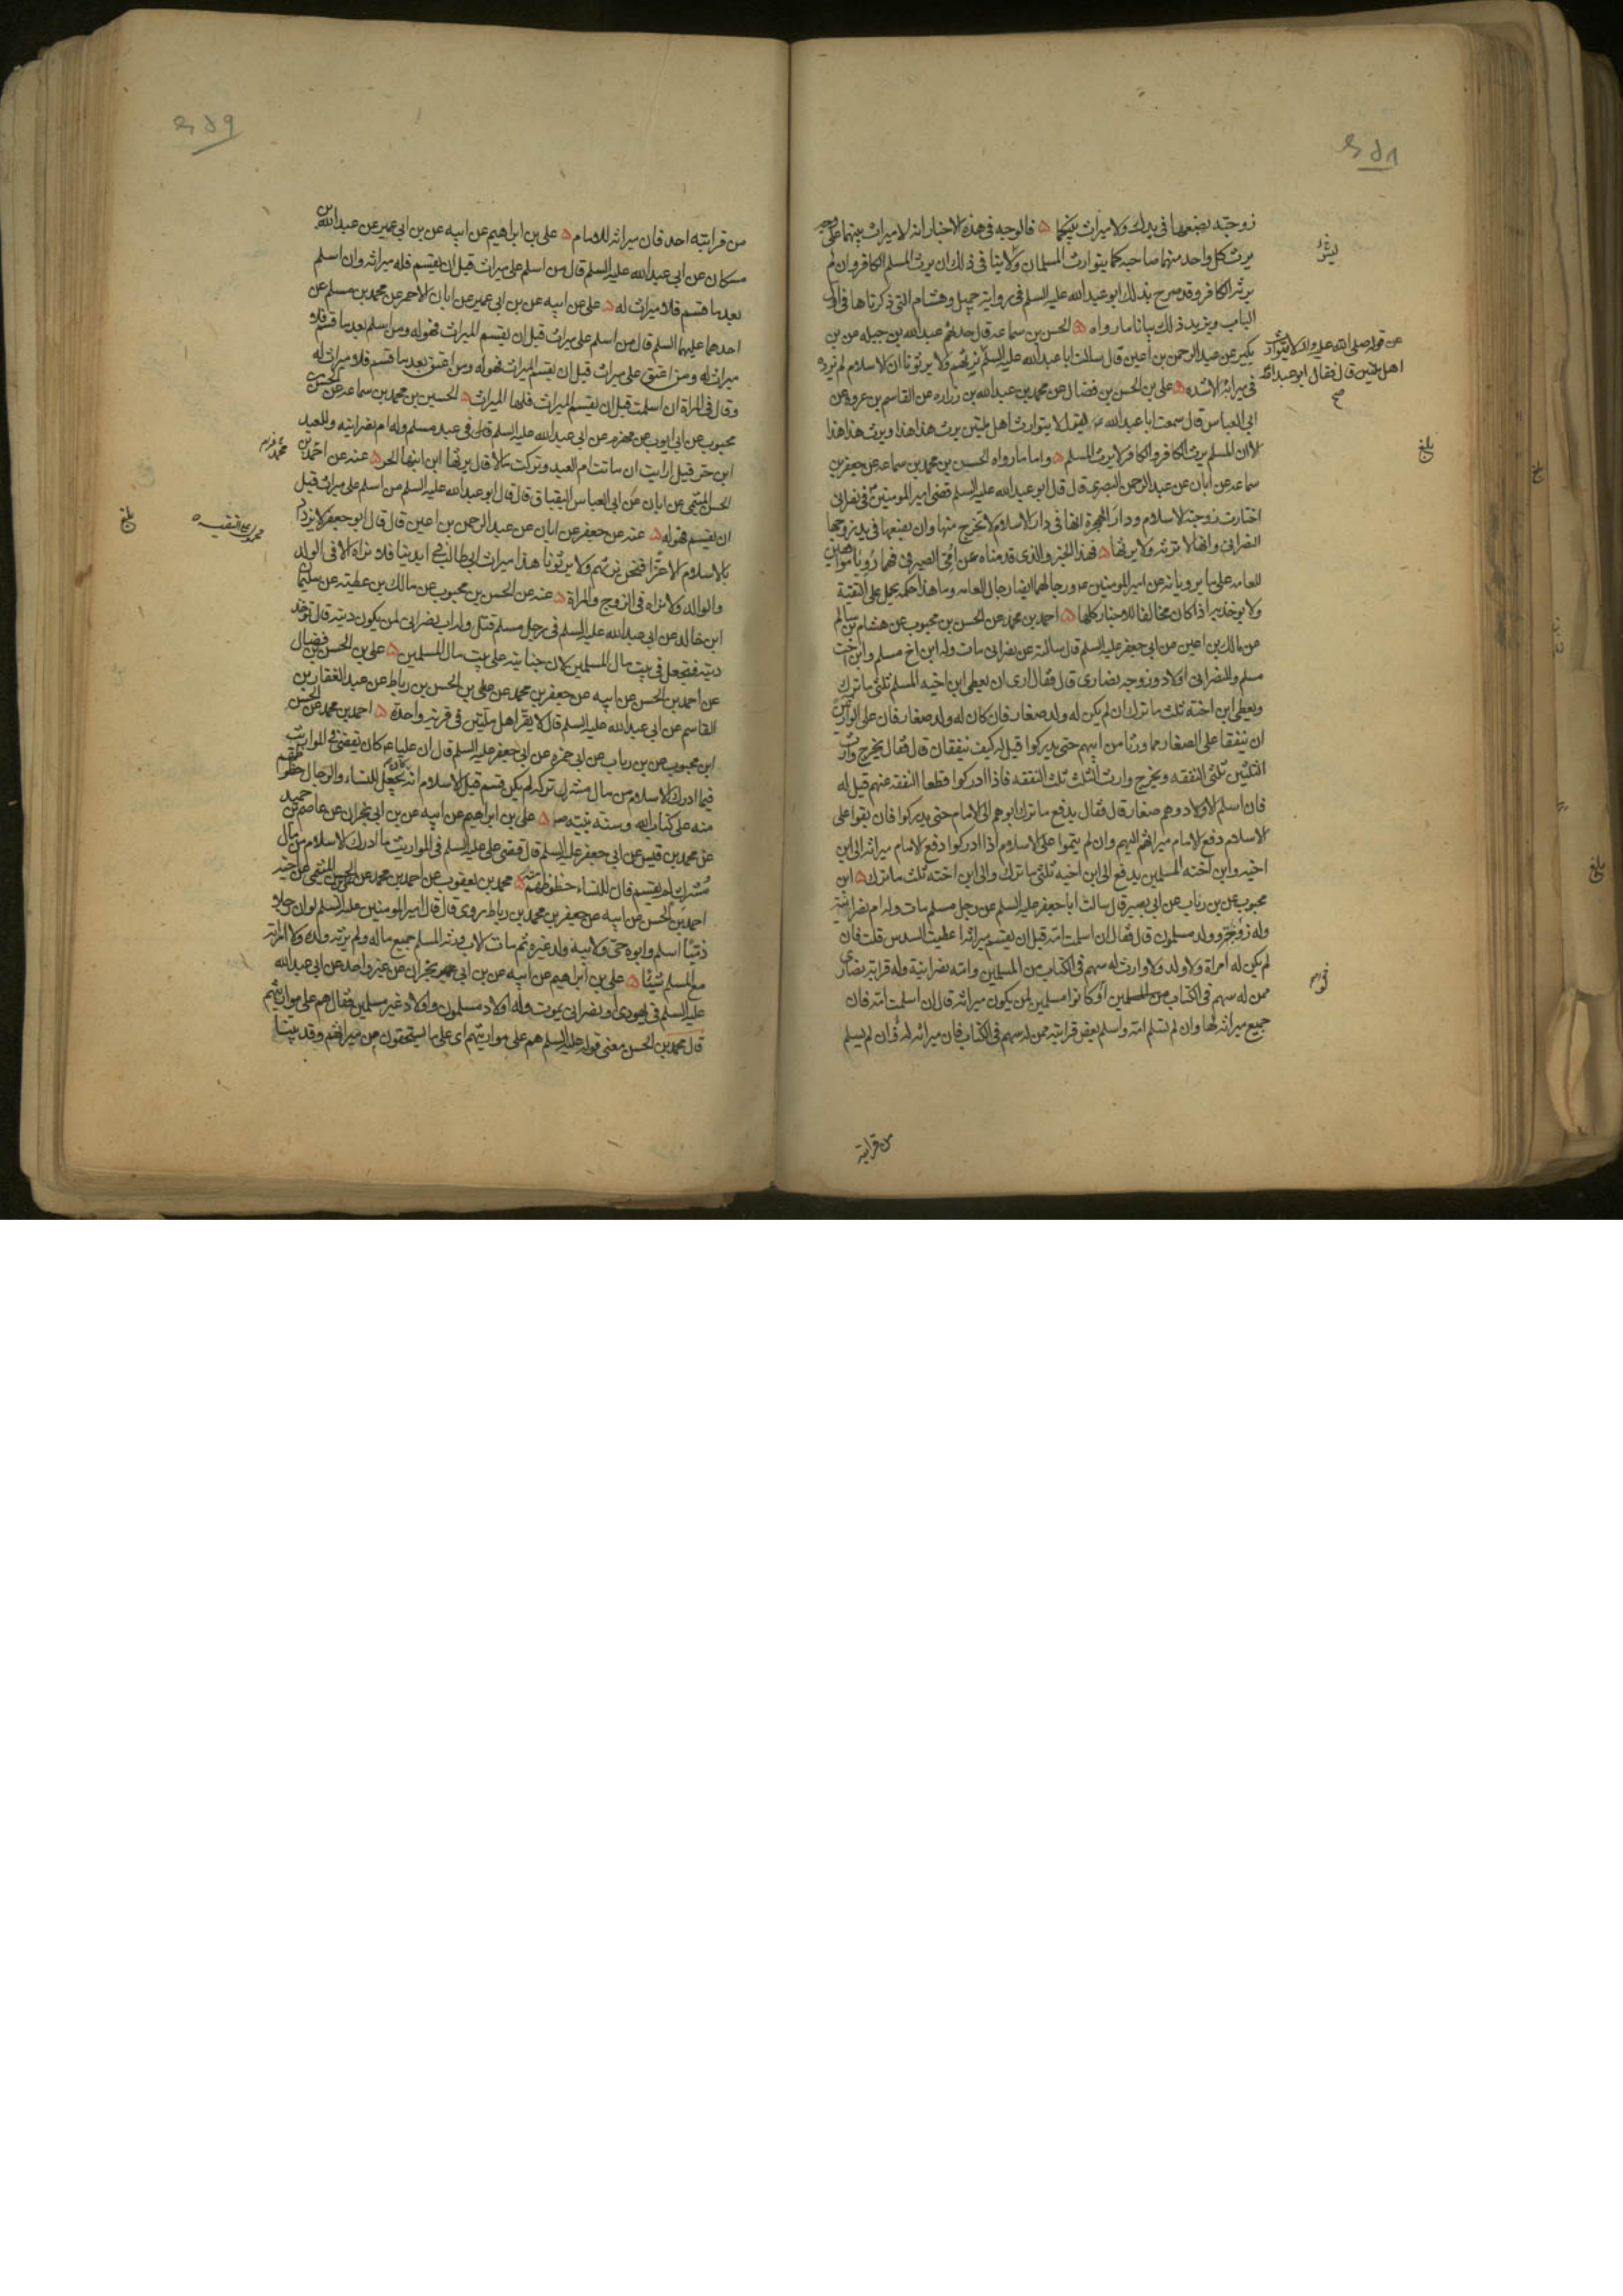 زوجته بضعها في يدك ولا ميراث بينكما ۵ فالوجه في هذه الاخبار انه لا ميراث بينهما على وجه
يرث كل واحد منهما صاحبه كما يتوارث المسلمان ولا ينافي ذلك ان يرث المسلم الكافر وان لم
يرثه الكافر وقد صرح بذلك ابو عبد الله عليه السلم في رواية جميل وهشام التي ذكرناها في اول
الباب ويزيد ذلك بيانا ما رواه ۵ الحسن بن سماعه قال حدثهم عبد الله بن جبله عن بن
بكير عن عبد الرحمن بن اعين قال سالت ابا عبد الله عليه السلم نرثهم ولا يرثونا ان الاسلام لم يزده
عن قوله صلى الله عليه واله لا يتوارث
اهل ملتين قال فقال ابو عبد الله
صح
في ميراثه الا شده ۵ علي بن الحسن بن فضال عن محمد بن عبد الله بن زراره عن القاسم بن عروه عن
ابي العباس قال سمعت ابا عبد الله يقول لا يتوارث اهل ملتين يرث هذا هذا ويرث هذا هذا
الا ان المسلم يرث الكافر والكافر لا يرث المسلم ۵ واما ما رواه الحسن بن محمد بن سماعه عن جعفر بن
بلغ
سماعه عن ابان عن عبد الرحمن البصري قال قال ابو عبد الله عليه السلم قضى امير المومنين في نصراني
اختارت زوجته الاسلام ودار الهجرة انها في دار الاسلام لا تخرج منها وان بضعها في يد زوجها
النصراني وانها لا ترثه ولا يرثها ۵ فهذا الخبر والذي قدمناه عن امي الصيرفي فهما رويا موافقين
للعامه على ما يرويانه عن امير المومنين ورجالهما ايضا رجال العامه وما هذا حكمه يحمل على التقية
ولا يوخذ به اذا كان مخالفا للاخبار كلها ۵ احمد بن محمد عن الحسن بن محبوب عن هشام بن سالم
عن مالك بن اعين عن ابي جعفر عليه السلم قال سالته عن نصراني مات وله ابن اخ مسلم وابن اخت
مسلم وللنصراني اولاد وزوجه نصارى قال فقال ارى ان يعطى ابن اخيه المسلم ثلثي ما ترك
ويعطى ابن اخته ثلث ما ترك ان لم يكن له ولد صغار فان كان له ولد صغار فان على الوارثين
ان ينفقا على الصغار مما ورثا من ابيهم حتى يدركوا قيل له كيف ينفقان قال فقال يخرج وارث
الثلثين ثلثي النفقه ويخرج وارث الثلث ثلث النفقه فاذا ادركوا قطعا النفقه عنهم قيل له
فان اسلم الاولاد وهم صغار قال فقال يدفع ما ترك ابوهم الى الامام حتى يدركوا فان بقوا على
الاسلام دفع الامام ميراثهم اليهم وان لم يتموا على الاسلام اذا ادركوا دفع الامام ميراثه الى ابن
اخيه وابن اخته المسلمين يدفع الى ابن اخيه ثلثي ما ترك والى ابن اخته ثلث ما ترك ۵ ابن
محبوب عن بن رئاب عن ابي بصير قال سالت ابا جعفر عليه السلم عن رجل مسلم مات وله ام نصرانية
وله زوجه وولد مسلمون قال فقال ان اسلمت امه قبل ان يقسم ميراثه اعطيت السدس قلت فان
لم يكن له امراة ولا ولد ولا وارث له سهم في الكتاب من المسلمين وامه نصرانية وله قرابة نصارى
ممن له سهم في الكتاب من المسلمين لو كانوا مسلمين لمن يكون ميراثه قال ان اسلمت امه فان
جميع ميراثه لها وان لم تسلم امه واسلم بعض قرابته ممن له سهم في الكتاب فان ميراثه له وان لم يسلم
من قرابته
من قرابته احد فان ميراثه للامام ۵ علي بن ابراهيم عن ابيه عن بن ابي عمير عن عبد الله بن
مسكان عن ابي عبد الله عليه السلم قال من اسلم على ميراث قبل ان يقسم فله ميراثه وان اسلم
بعد ما قسم فلا ميراث له ۵ علي عن ابيه عن بن ابي عمير عن ابان الاحمر عن محمد بن مسلم عن
احدهما عليهما السلم قال من اسلم على ميراث قبل ان يقسم الميراث فهو له ومن اسلم بعد ما قسم فلا
ميراث له ومن اعتق على ميراث قبل ان يقسم الميراث فهو له ومن اعتق بعد ما قسم فلا ميراث له
وقال في المراة ان اسلمت قبل ان يقسم الميراث فلها الميراث ۵ الحسين بن محمد بن سماعه عن الحسن بن
محبوب عن ابي ايوب عن مهزم عن ابي عبد الله عليه السلم قال في عبد مسلم وله ام نصرانيه وللعبد
ابن حر قيل ارايت ان ماتت ام العبد وتركت مالا قال يرثها ابن ابنها الحر ۵ عنه عن احمد بن
الحسن الميثمي عن ابان عن ابي العباس البقباق قال قال ابو عبد الله عليه السلم من اسلم على ميراث قبل
ان يقسم فهو له ۵ عنه عن جعفر عن ابان عن عبد الرحمن بن اعين قال قال ابو جعفر لا يزداد
بلغ
بالاسلام الا عزا فنحن نرثهم ولا يرثونا هذا ميراث ابي طالب في ايدينا فلا نراه الا في الولد
والوالد ولا نراه في الزوج والمراة ۵ عنه عن الحسن بن محبوب عن مالك بن عطيه عن سليمان
ابن خالد عن ابي عبد الله عليه السلم في رجل مسلم قتل وله اب نصراني لمن يكون ديته قال توخذ
ديته فتجعل في بيت مال المسلمين لان جنايته على بيت مال المسلمين ۵ علي بن الحسن بن فضال
عن احمد بن الحسن عن ابيه عن جعفر بن محمد عن علي بن الحسن بن رباط عن عبد الغفار بن
القاسم عن ابي عبد الله عليه السلم قال لا يقر اهل ملتين في قرية واحدة ۵ احمد بن محمد عن الحسن
ابن محبوب عن بن رياب عن ابي حمزه عن ابي جعفر عليه السلم قال ان عليا كان يقضي في المواريث
فيما ادرك الاسلام من مال مشرك تركه لم يكن قسم قبل الاسلام انه كان يجعل للنساء والرجال حظوظهم
منه على كتاب الله وسنة نبيه ۵ علي بن ابراهيم عن ابيه عن بن ابي نجران عن عاصم بن حميد
عن محمد بن قيس عن ابي جعفر عليه السلم قال قضى علي عليه السلم في المواريث ما ادرك الاسلام من مال
مشرك لم يقسم فان للنساء حظوظهن منه ۵ محمد بن يعقوب عن احمد بن محمد عن علي بن الحسن الميثمي عن اخيه
احمد بن الحسن عن ابيه عن جعفر بن محمد بن رباط روى قال قال امير المومنين عليه السلم لو ان رجلا
ذميا اسلم وابوه حي ولابيه ولد غيره ثم مات الاب ورثه المسلم جميع ماله ولم يرثه ولده ولا امراته
مع المسلم شيئا ۵ علي بن ابراهيم عن ابيه عن بن ابي نجران عن غير واحد عن ابي عبد الله
عليه السلم في يهودي او نصراني يموت وله اولاد مسلمون واولاد غير مسلمين فقال هم على مواريثهم
قال محمد بن الحسن معنى قوله عليه السلم هم على مواريثهم اي على ما يستحقون من ميراثهم وقد بينا